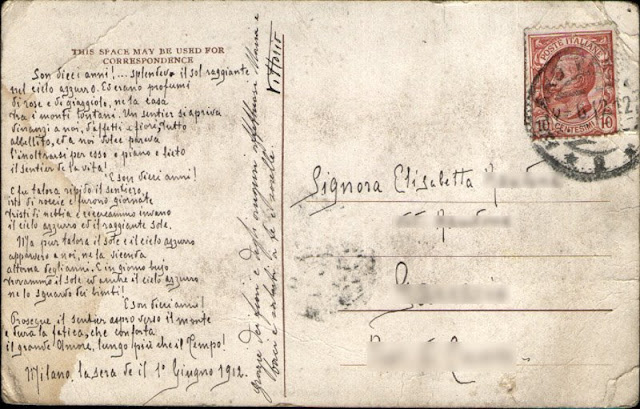 THIS SPACE MAY BE USED FOR
CORRESPONDENCE
Son dieci anni!... splendeva il sol raggiante
nel cielo azzurro. Ed erano profumi
di rose e di gaggiole, ne la casa
tra i monti lontani. Un sentier si apriva
dinanzi a noi, d'affetti e fiori, tutto
abbellito, ed a noi dolce pareva
l'inoltrarsi per esso e piano e lieto
il sentier de la vita!
E son dieci anni!
E fu talora ripido il sentiero,
irti di roccie e furono giornate
tristi di nebbia e cercammo invano
il cielo azzurro ed il raggiante sole.
Ma pur talora il sole e il cielo azzurro
apparvero a noi, ne la vicenda
alterna degli anni. E in giorno bujo
trovammo il sole ed anche il cielo azzurro
ne lo sguardo dei bimbi!
E son dieci anni!
Prosegue il sentier aspro verso il monte
e dura la fatica, che conforta
il grande Amore, lungo più che il Tempo!
Milano, la sera de il 1º Giugno 1912.
grazie dei fiori e degli auguri Mamma e
baci e saluti a le Sorelle.
Vittorio
Signora Elisabetta
POSTE ITALIANE
10 CENTESIMI 10